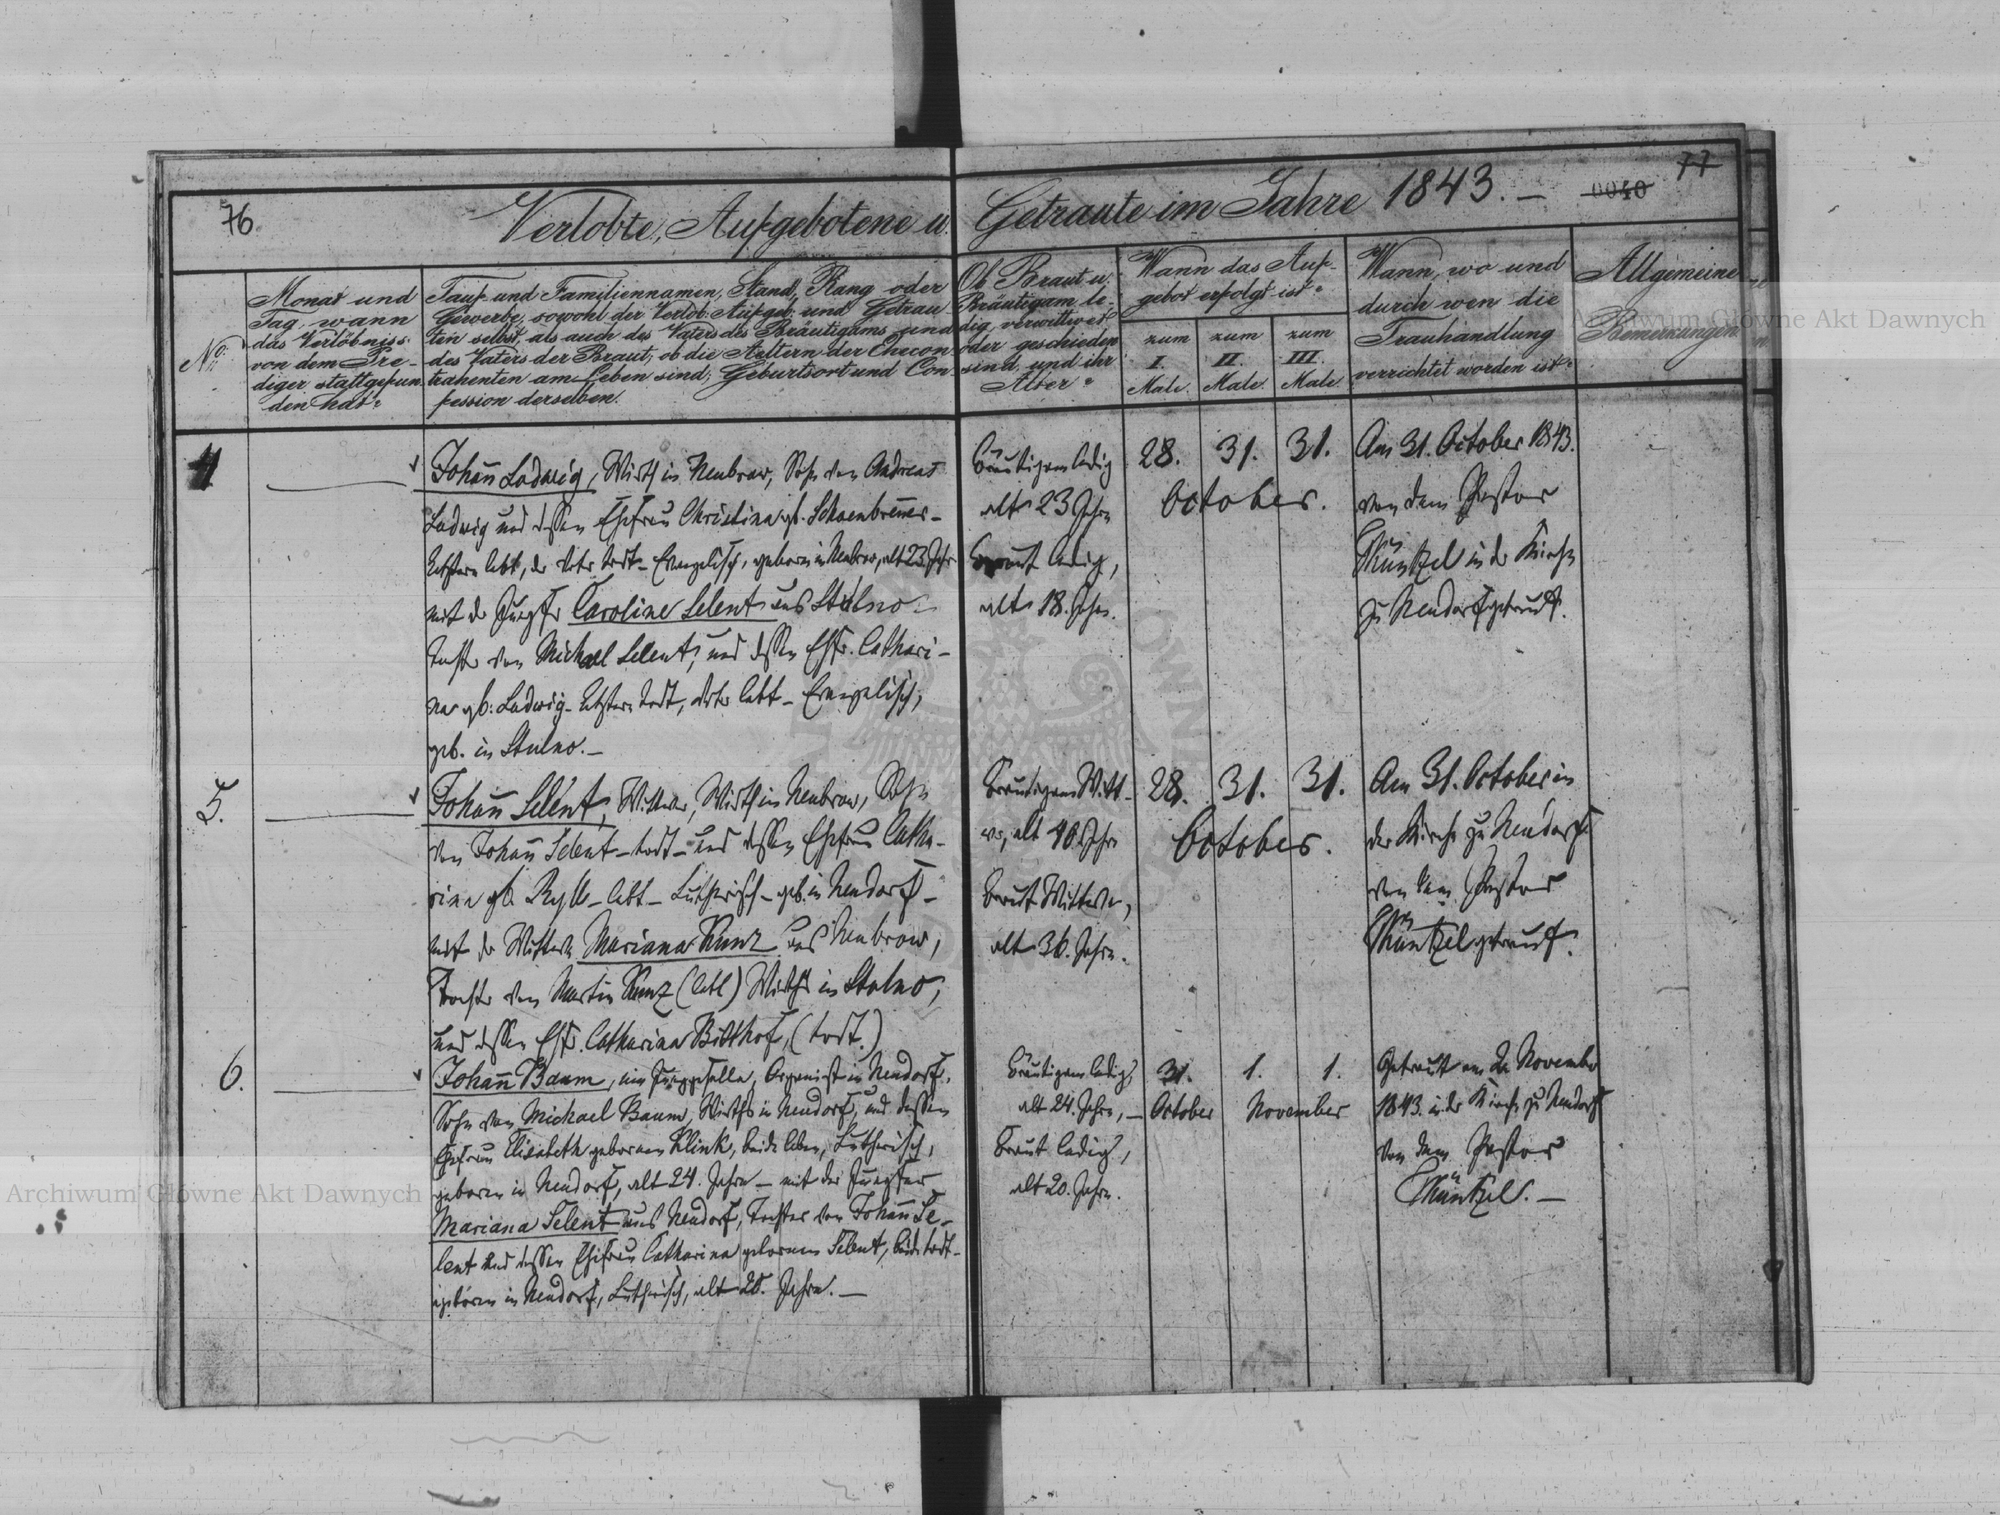 76.
Verlobte, Aufgebotene u. Getraute im Jahre 1843. —
0040
77
No.
Monat und
Tag, wann
das Verlöbniss
von dem Pre-
diger stattgefun
den hat
Tauf- und Familiennamen, Stand, Rang oder
Gewerbe, sowohl der Verlob: Aufgeb: und Getrau
ten selbst, als auch des Vaters des Bräutigams und
des Vaters der Braut, ob die Aeltern der Thecon
trahenten am Leben sind; Geburtsort und Con
fession derselben.
Ob Braut u.
Bräutigam le-
dig, verwittwet
oder geschieden
sind, und ihr
Alter
Wann das Auf-
gebot erfolgt ist
zum
I.
Male.
zum
II.
Male.
zum
III.
Male.
Wann, wo und
durch wen die
Trauhandlung
verrichtet worden ist
Allgemeine
Bemerkungen
4
Johañ Ludwig, Wirth in Neubrow, Sohn von Andreas
Ludwig und dessen Ehefrau Christina gb. Schoenbrenner -
Letztere lebt, der Vater todt - Evangelisch, geboren in Neubrow, alt 23 Jahr
mit der Jungfr Caroline Selent aus Stulno
Tochter von Michael Selent, und dessen Ehfr. Cathari-
na gb: Ludwig - Letztere todt, Vater lebt - Evangelisch,
geb. in Stulno. -
Bräutigam ledig
alt 23 Jahr
Braut ledig,
alt 18. Jahr.
28. 31. 31.
October.
Am 31. October 1843.
von dem Pastor
Müntzel in der Kirche
zu Neudorf getraut.
5.
Johañ Selent, Wittwer, Wirth in Neubrow, Sohn
von Johañ Selent - todt - und dessen Ehefrau Catha-
rina gb. Ryll - lebt - Lutherisch - geb. in Neudorf -
mit der Wittwe Mariana Kunz aus Neubrow,
Tochter von Martin Kunz (lebt) Wirths in Stulno,
und dessen Ehfr. Catharina Bitthof, (todt.)
Bräutigam Witt-
wer, alt 40 Jahr
Braut Wittwe,
alt 36. Jahr.
28. 31. 31.
October.
Am 31. October in
der Kirche zu Neudorf
von dem Pastor
Müntzel getraut.
6.
Johañ Baum, ein Junggeselle, Organist in Neudorf,
Sohn von Michael Baum, Wirths in Neudorf, und dessen
Ehefrau Elisabeth geboren Klink, beide leben, Lutherisch,
geboren in Neudorf, alt 24. Jahre - mit der Jungfer
Mariana Selent aus Neudorf, Tochter von Johañ Se-
lent und dessen Ehefrau Catharina geborenen Selent, beide todt -
geboren in Neudorf, Lutherisch, alt 20. Jahre. —
Bräutigam ledig,
alt 24. Jahre, -
Braut ledig,
alt 20. Jahre.
31. 1. 1.
October November
Getraut am 2. November
1843. in der Kirche zu Neudorf
von dem Pastor
Müntzel. -
Archiwum Główne Akt Dawnych
Archiwum Główne Akt Dawnych